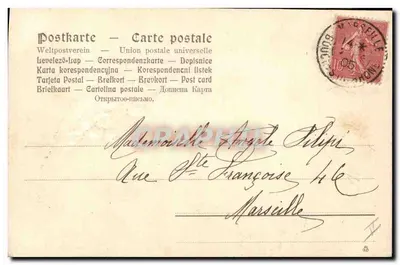 Postkarte — Carte postale
Weltpostverein — Union postale universelle
Levelező-Lap — Correspondenzkarte — Dopisnice
Karta korespondencyjna — Korespondenční lístek
Tarjeta Postal — Brefkort — Brevkort — Post card
Briefkaart — Cartolina postale — Дописна Карта
Открытое-письмо.
Mademoiselle Argyle Filipi
Rue Ste Françoise 46
Marseille